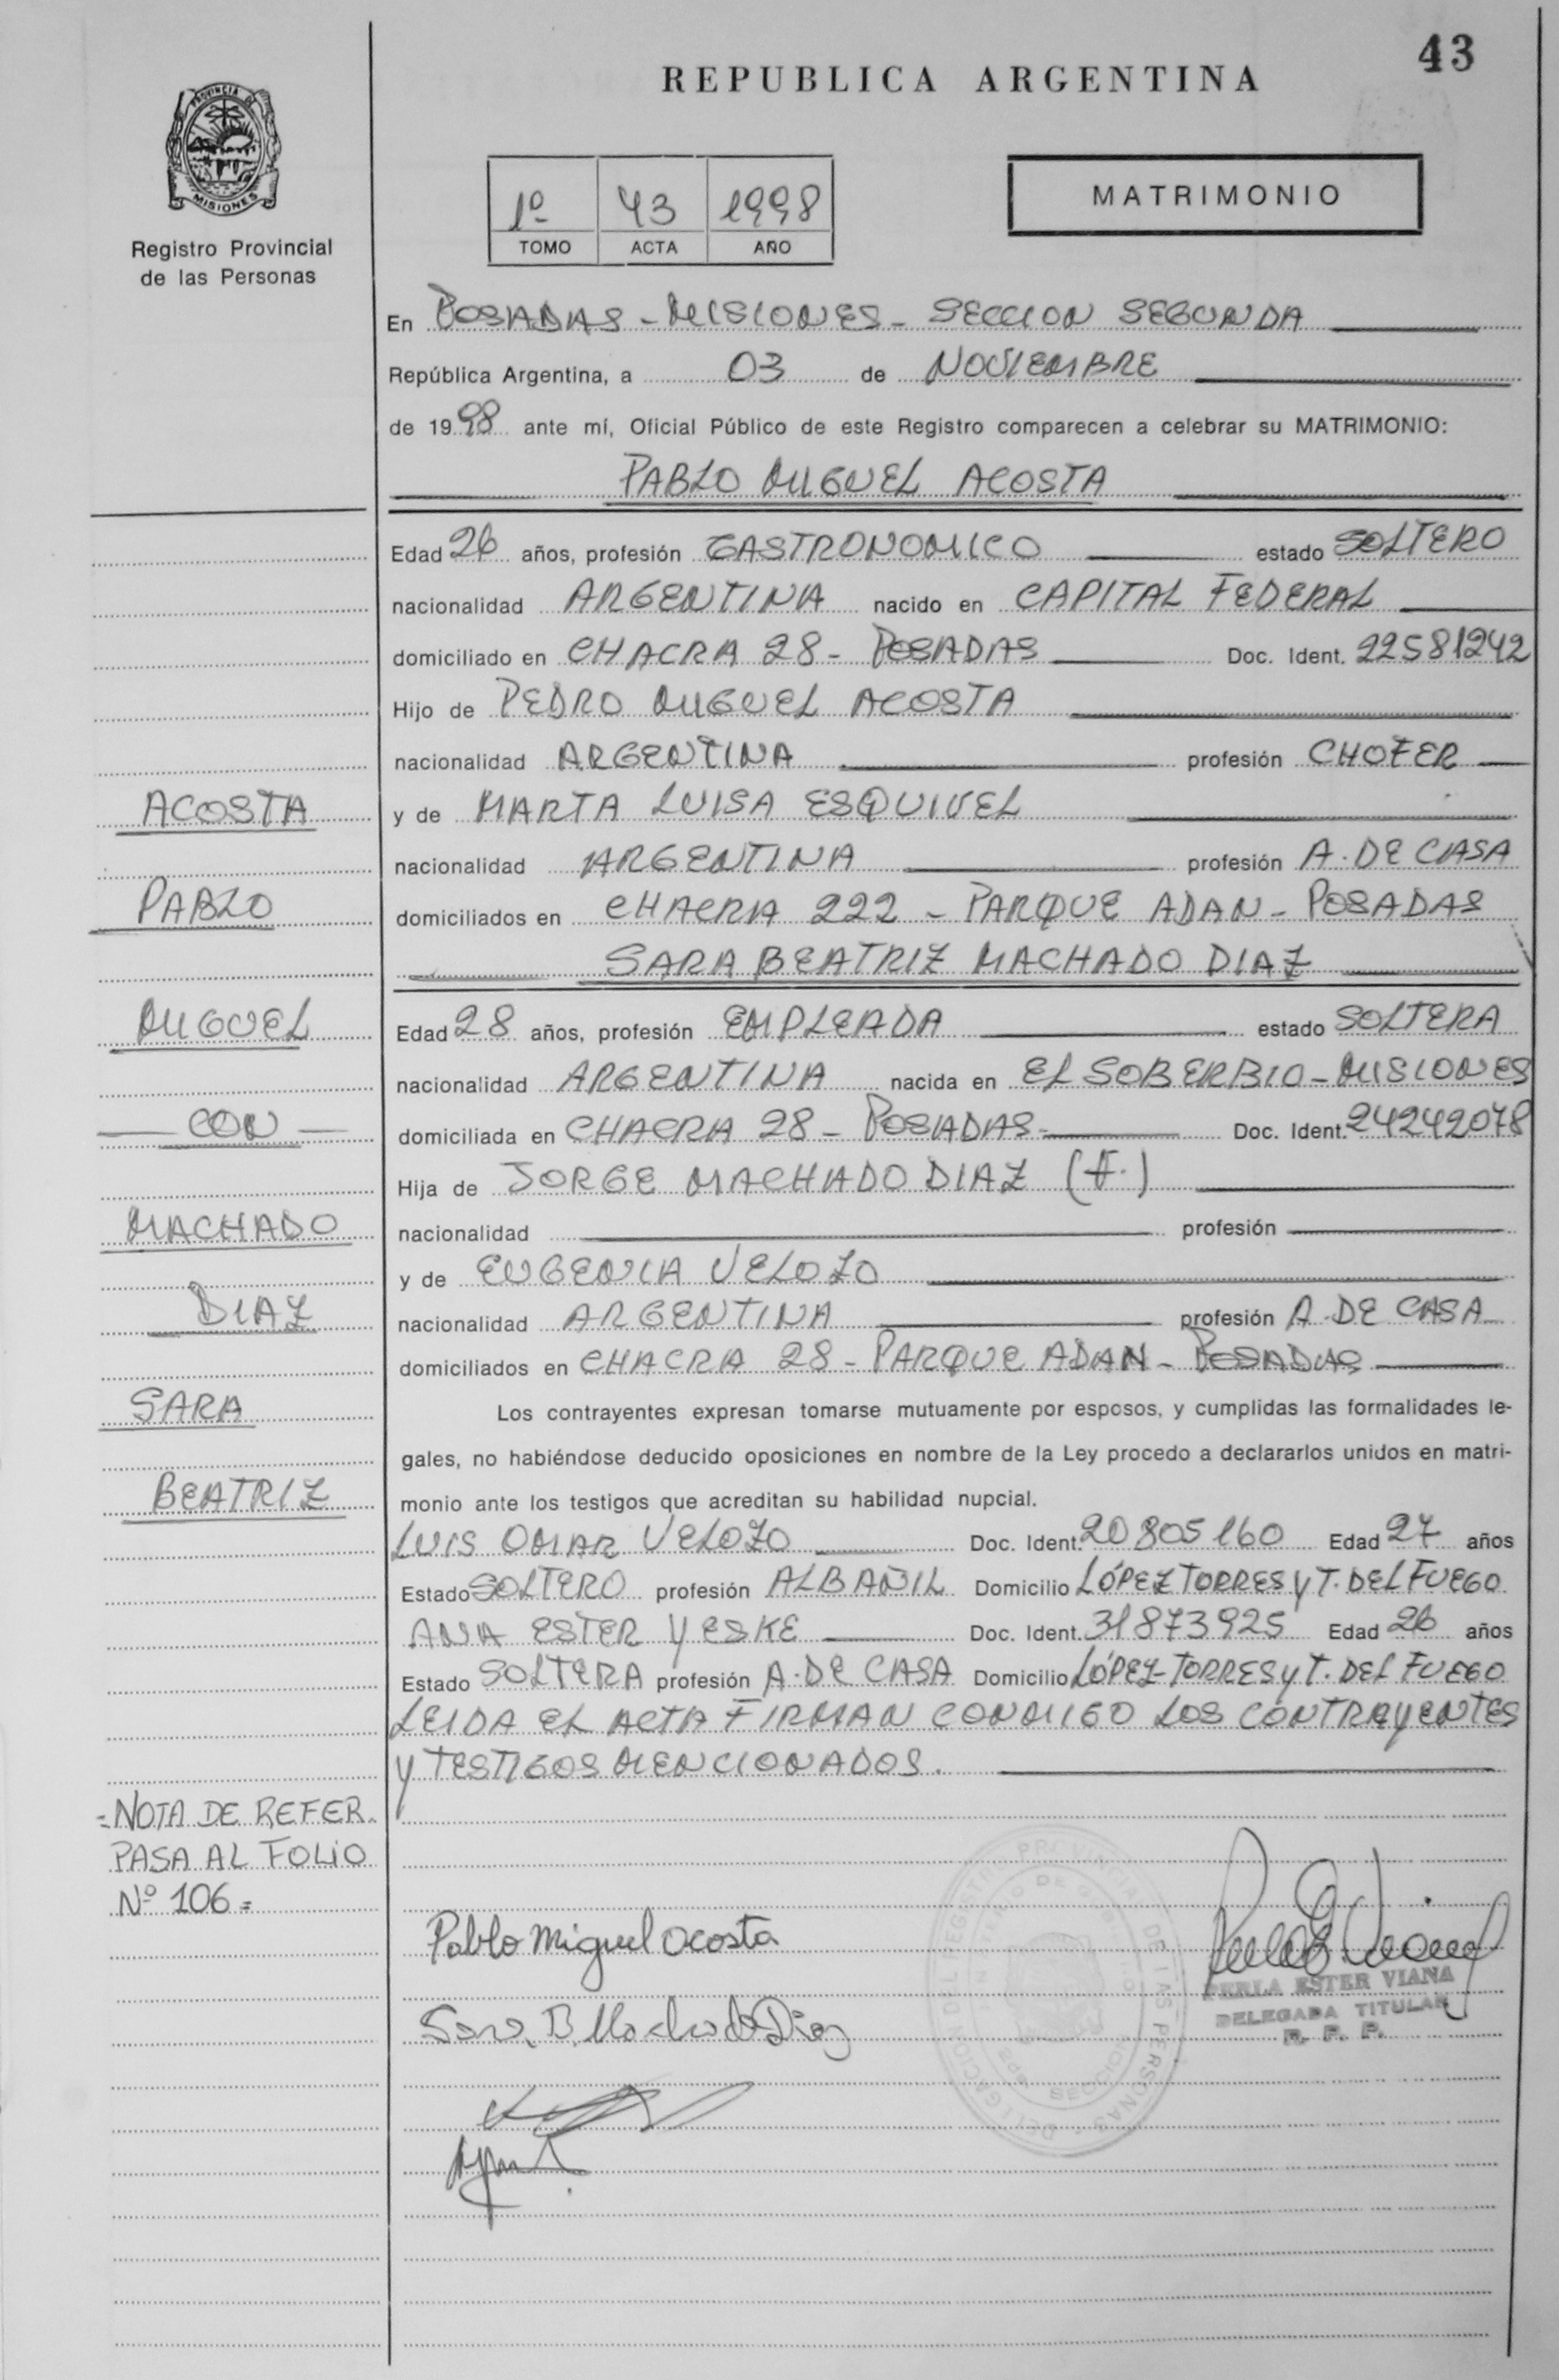 43
REPUBLICA ARGENTINA
PROVINCIA DE MISIONES
Registro Provincial
de las Personas
1º 43 1998
TOMO ACTA AÑO
MATRIMONIO
En POSADAS - MISIONES - SECCION SEGUNDA
República Argentina, a 03 de NOVIEMBRE
de 1998 ante mí, Oficial Público de este Registro comparecen a celebrar su MATRIMONIO:
PABLO MIGUEL ACOSTA
Edad 26 años, profesión GASTRONOMICO estado SOLTERO
nacionalidad ARGENTINA nacido en CAPITAL FEDERAL
domiciliado en CHACRA 28 - POSADAS Doc. Ident. 22581242
Hijo de PEDRO MIGUEL ACOSTA
nacionalidad ARGENTINA profesión CHOFER
y de MARTA LUISA ESQUIVEL
nacionalidad ARGENTINA profesión A. DE CASA
domiciliados en CHACRA 222 - PARQUE ADAN - POSADAS
SARA BEATRIZ MACHADO DIAZ
Edad 28 años, profesión EMPLEADA estado SOLTERA
nacionalidad ARGENTINA nacida en EL SOBERBIO - MISIONES
domiciliada en CHACRA 28 - POSADAS - Doc. Ident. 24242078
Hija de JORGE MACHADO DIAZ (F.)
nacionalidad profesión
y de EUGENIA VELOZO
nacionalidad ARGENTINA profesión A. DE CASA
domiciliados en CHACRA 28 - PARQUE ADAN - POSADAS
Los contrayentes expresan tomarse mutuamente por esposos, y cumplidas las formalidades le-
gales, no habiéndose deducido oposiciones en nombre de la Ley procedo a declararlos unidos en matri-
monio ante los testigos que acreditan su habilidad nupcial.
LUIS OMAR VELOZO Doc. Ident. 20805160 Edad 27 años
Estado SOLTERO profesión ALBAÑIL Domicilio LÓPEZ TORRES Y T. DEL FUEGO
ANA ESTER YESKE Doc. Ident. 31873925 Edad 26 años
Estado SOLTERA profesión A. DE CASA Domicilio LÓPEZ-TORRES Y T. DEL FUEGO
LEIDA EL ACTA FIRMAN CONMIGO LOS CONTRAYENTES
Y TESTIGOS MENCIONADOS.
ACOSTA
PABLO
MIGUEL
- CON -
MACHADO
DIAZ
SARA
BEATRIZ
=NOTA DE REFER.
PASA AL FOLIO
Nº 106=
Pablo Miguel Acosta
Sara B Machado Diaz
PERLA ESTER VIANA
DELEGADA TITULAR
R. P. P.